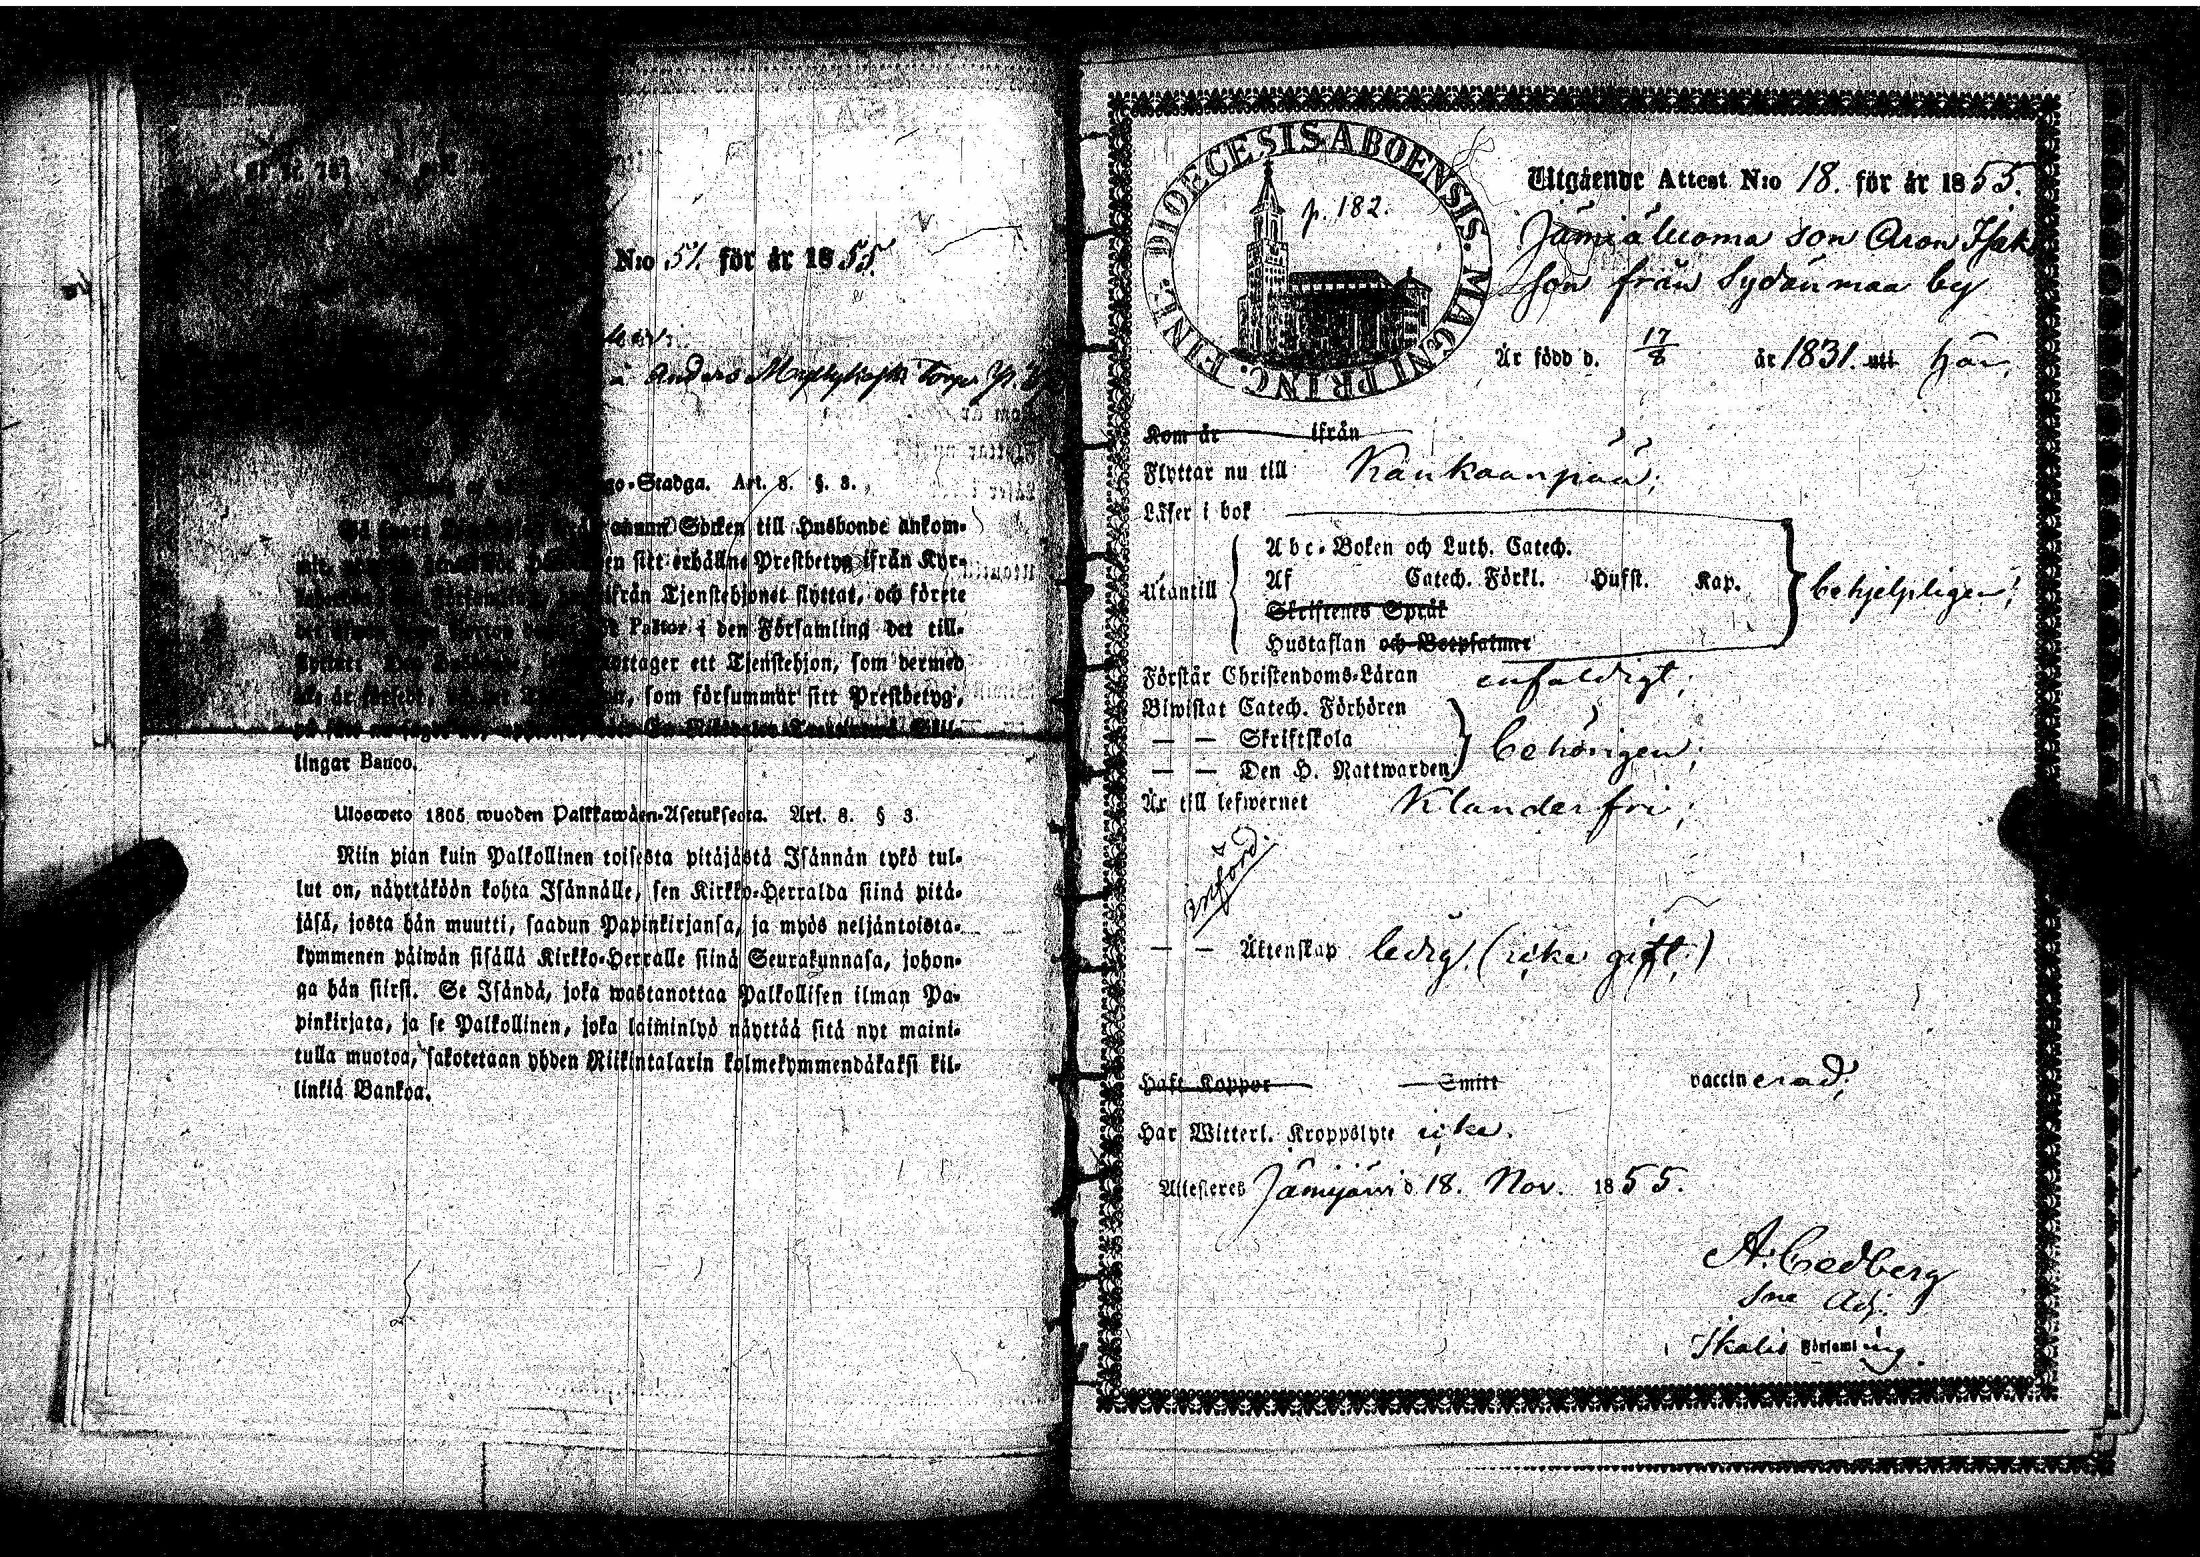 N:o 51. för år 1855.
Anders
go-Stadga. Art. 8. §. 3.
Socken till Husbonde ankom-
sitt erhållne Prestbetyg ifrån Kyr-
ifrån Tjenstehjonet flyttat, och förete
Pastor i den Församling det till-
ett Tjenstehjon, som dermed
som försummar sitt Prestbetyg,
lingar Banco.
Ulosweto 1805 wuoden Palkkawäen-Asetuksesta. Art. 8. § 3
Niin pian kuin Palkollinen toisesta pitäjästä Isännän tykö tul-
lut on, näyttäköön kohta Isännälle, sen Kirkko-Herralda siinä pitä-
jäsä, josta hän muutti, saadun Papinkirjansa, ja myös neljäntoista-
kymmenen päiwän sisällä Kirkko-Herralle siinä Seurakunnasa, johon-
ga hän siirsi. Se Isändä, joka wastanottaa Palkollisen ilman Pa-
pinkirjata, ja se Palkollinen, joka laiminlyö näyttää sitä nyt maini-
tulla muotoa, sakotetaan yhden Riikintalarin kolmekymmendäkaksi kil-
linkiä Bankoa.
DIOECESIS ABOENSIS. MAGNI PRINC. FINL.
p. 182.
Utgående Attest N:o 18. för år 1855.
son Aron Isak
son från Sydänmaa by
Är född d. 17/8 år 1831. uti här,
Kom år ifrån
Flyttar nu till Kankaanpää;
Läser i bok
Utantill
Abc-Boken och Luth. Catech.
Af Catech. Förkl. Husft. Kap.
Skriftenes Språk
Hustaflan och Botpsalmer
behjelpligen;
Förstår Christendoms-Läran enfaldigt;
Biwistat Catech. Förhören
— — Skriftskola
— — Den H. Nattwarden
behörigen;
Är till lefwernet Klanderfri;
införd.
— — Äktenskap ledig. (icke gift;)
Haft Koppor — Smitt vaccinerad;
Har Witterl. Kroppslyte icke.
Attesteres Jämijärvi d 18. Nov. 1855.
A. Cedberg
Adj.
Ikalis Församling.